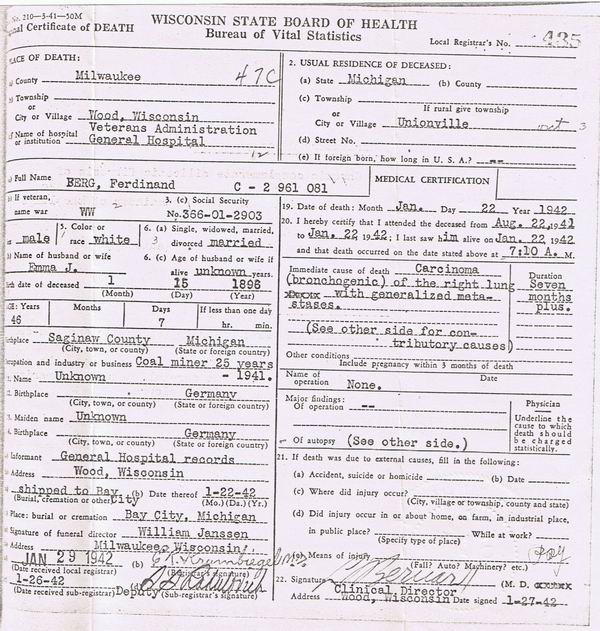 No. 210-3-41-50M
WISCONSIN STATE BOARD OF HEALTH
Certificate of DEATH
Bureau of Vital Statistics
Local Registrar's No. 435
PLACE OF DEATH:
County Milwaukee 47C
Township
or
City or Village Wood, Wisconsin
Name of hospital or institution Veterans Administration
General Hospital
12
2. USUAL RESIDENCE OF DECEASED:
(a) State Michigan (b) County
(c) Township
If rural give township
or
City or Village Unionville 3
(d) Street No.
(e) If foreign born, how long in U. S. A.? --
Full Name BERG, Ferdinand C - 2 961 081
If veteran, name war WW 2
3. (c) Social Security No. 366-01-2903
male
5. Color or race white
6. (a) Single, widowed, married, divorced married
3
Name of husband or wife
Emma J.
6. (c) Age of husband or wife if alive unknown years.
Birth date of deceased 1 15 1896
(Month) (Day) (Year)
AGE: Years Months Days If less than one day
46 7 hr. min.
Birthplace Saginaw County Michigan
(City, town, or county) (State or foreign country)
Occupation and industry or business Coal miner 25 years
- 1941.
Name Unknown
Birthplace Germany
(City, town, or county) (State or foreign country)
Maiden name Unknown
Birthplace Germany
(City, town, or county) (State or foreign country)
Informant General Hospital records
Address Wood, Wisconsin
shipped to Bay City (b) Date thereof 1-22-42
(Burial, cremation or other) (Mo.) (Da.) (Yr.)
Place: burial or cremation Bay City, Michigan
Signature of funeral director William Janssen
Address Milwaukee, Wisconsin
JAN 29 1942 (b)
(Date received local registrar) (Registrar's signature)
1-26-42 (d)
(Date received sub-registrar) Deputy (Sub-registrar's signature)
MEDICAL CERTIFICATION
19. Date of death: Month Jan. Day 22 Year 1942
20. I hereby certify that I attended the deceased from Aug. 22, 1941
to Jan. 22, 1942; I last saw him alive on Jan. 22 1942
and that death occurred on the date stated above at 7:10 A. M.
Immediate cause of death Carcinoma
(bronchogenic) of the right lung
with generalized meta-
stases.
(See other side for con-
tributory causes)
Duration
Seven
months
plus.
Other conditions
Include pregnancy within 3 months of death
Name of operation None. Date
Major findings:
Of operation --
Of autopsy (See other side.)
Physician
Underline the cause to which death should be charged statistically.
21. If death was due to external causes, fill in the following:
(a) Accident, suicide or homicide (b) Date
(c) Where did injury occur?
(City, village or township, county and state)
(d) Did injury occur in or about home, on farm, in industrial place,
in public place? While at work?
(Specify type of place)
(e) Means of injury
(Fall? Auto? Machinery? etc.)
22. Signature (M. D.
Clinical Director
Address Wood, Wisconsin Date signed 1-27-42